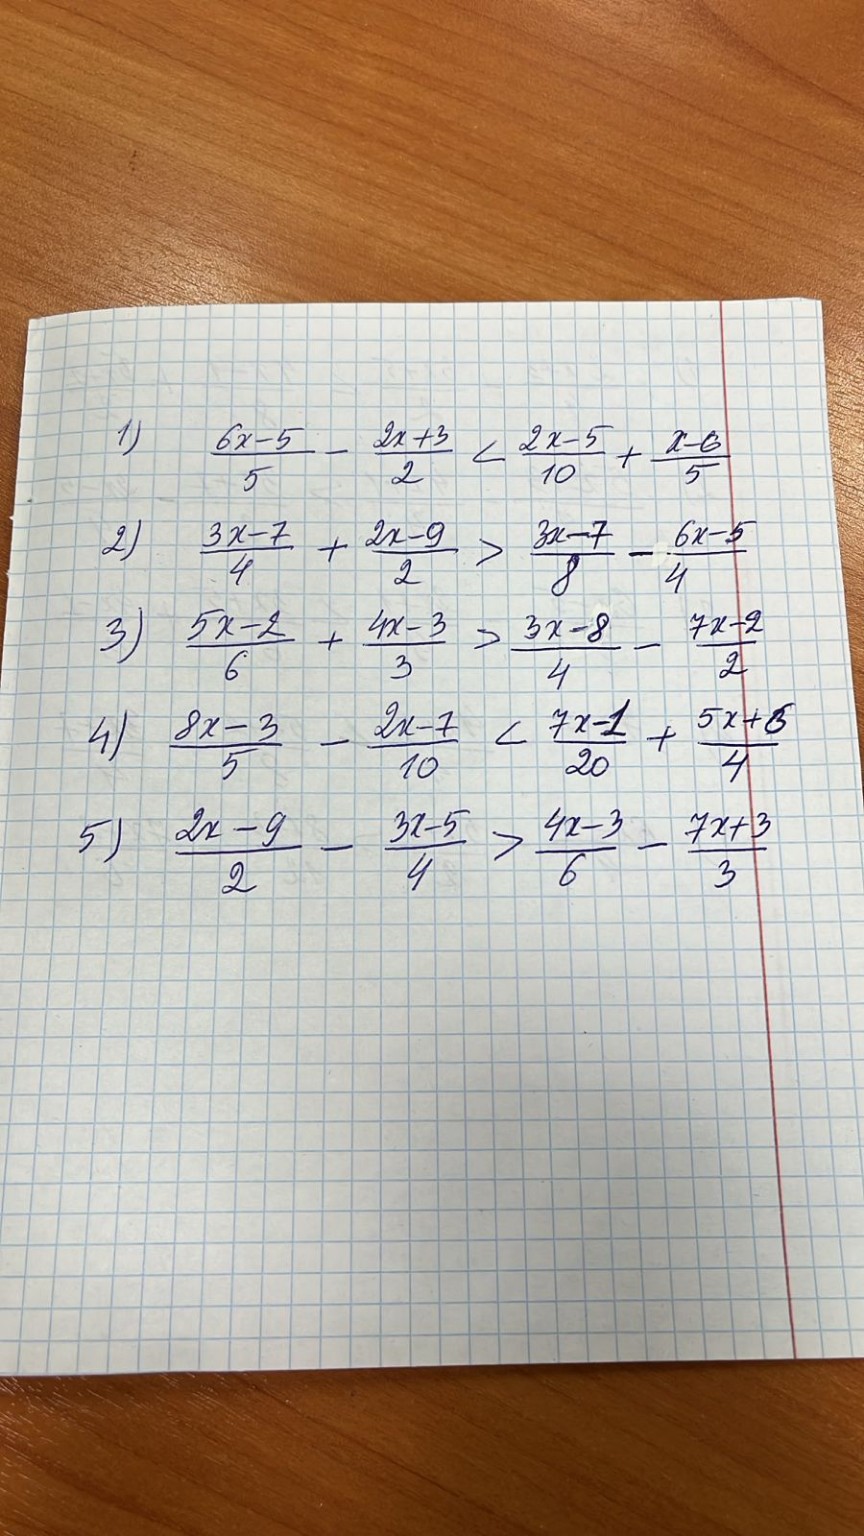 1) (6x-5)/5 - (2x+3)/2 < (2x-5)/10 + (x-6)/5
2) (3x-7)/4 + (2x-9)/2 > (3x-7)/8 - (6x-5)/4
3) (5x-2)/6 + (4x-3)/3 > (3x-8)/4 - (7x-2)/2
4) (8x-3)/5 - (2x-7)/10 < (7x-1)/20 + (5x+6)/4
5) (2x-9)/2 - (3x-5)/4 > (4x-3)/6 - (7x+3)/3